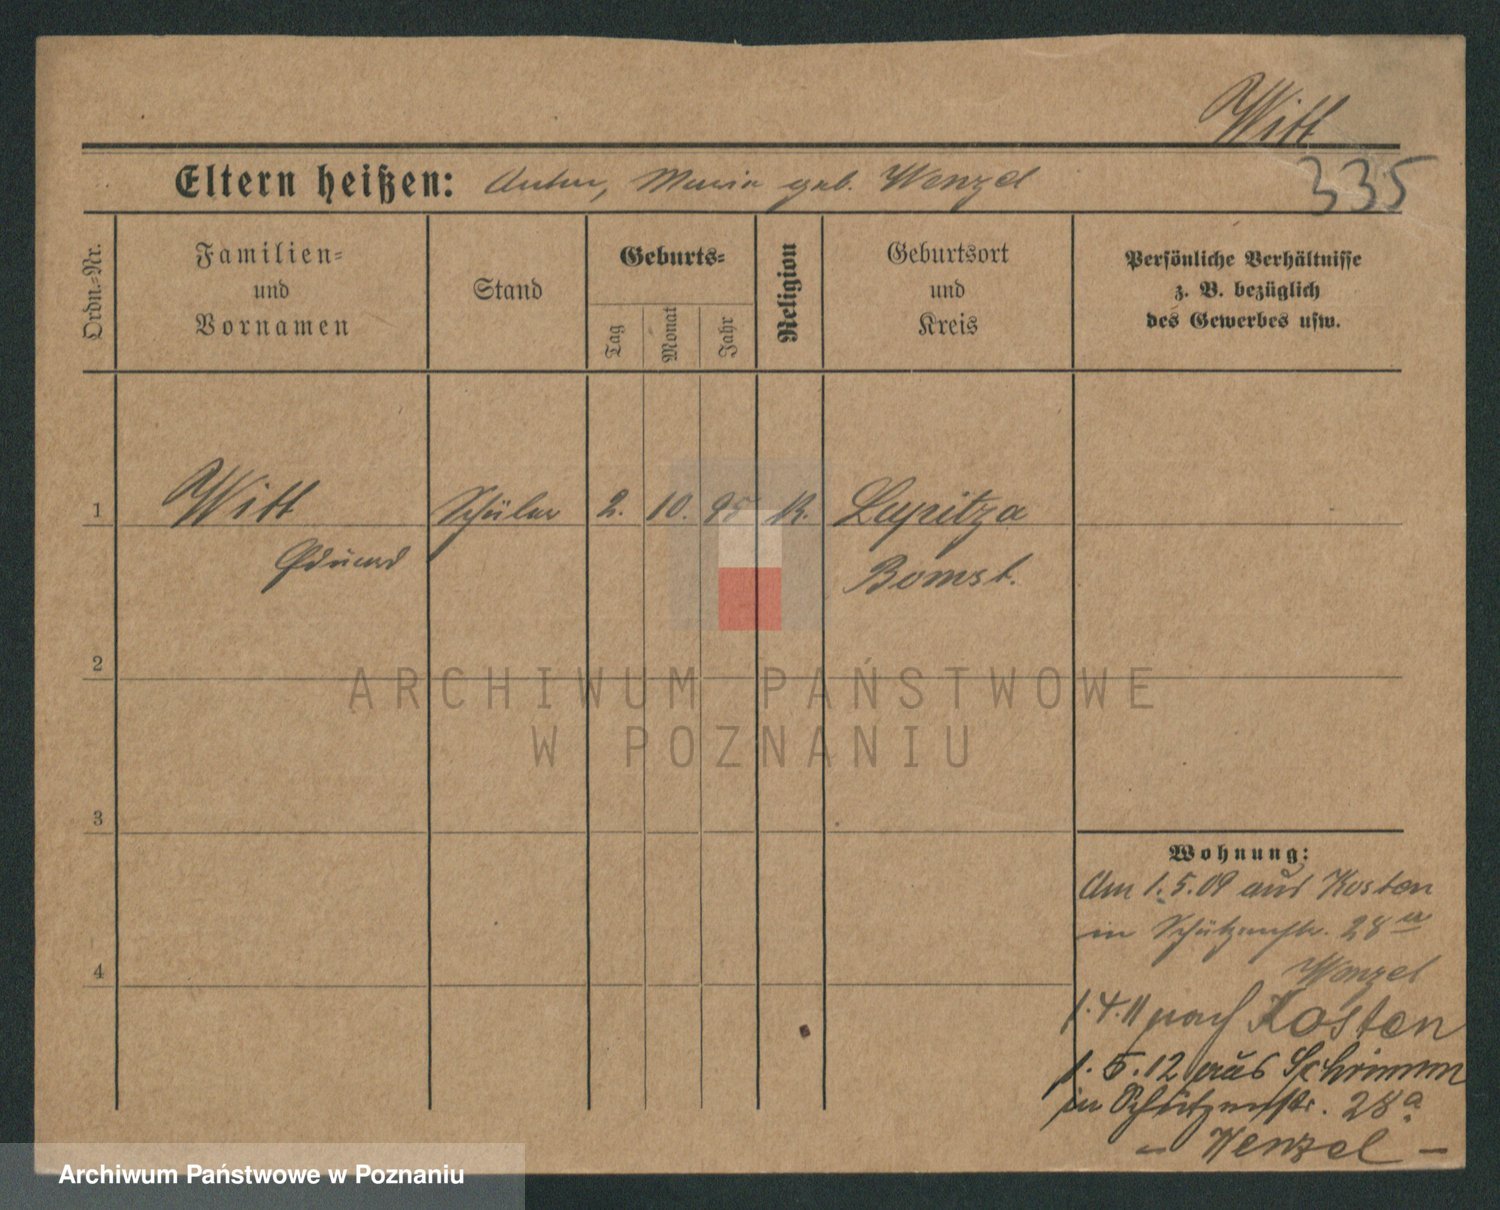 Witt
335
Eltern heißen: Anton, Maria geb. Wenzel
Ordn.-Nr.
Familien-
und
Vornamen
Stand
Geburts-
Tag
Monat
Jahr
Religion
Geburtsort
und
Kreis
Persönliche Verhältnisse
z. B. bezüglich
des Gewerbes usw.
1 Witt Schüler 2. 10. 95 K. Lupitza
Eduard Bomst.
2
3
4
Wohnung:
Am 1.5.09 aus Kosten
in Schützenstr. 28 a
Wenzel
1.4.11 nach Kosten
1.5.12 aus Schrimm
in Schützenstr. 28 a
- Wenzel -
ARCHIWUM PAŃSTWOWE
W POZNANIU
Archiwum Państwowe w Poznaniu